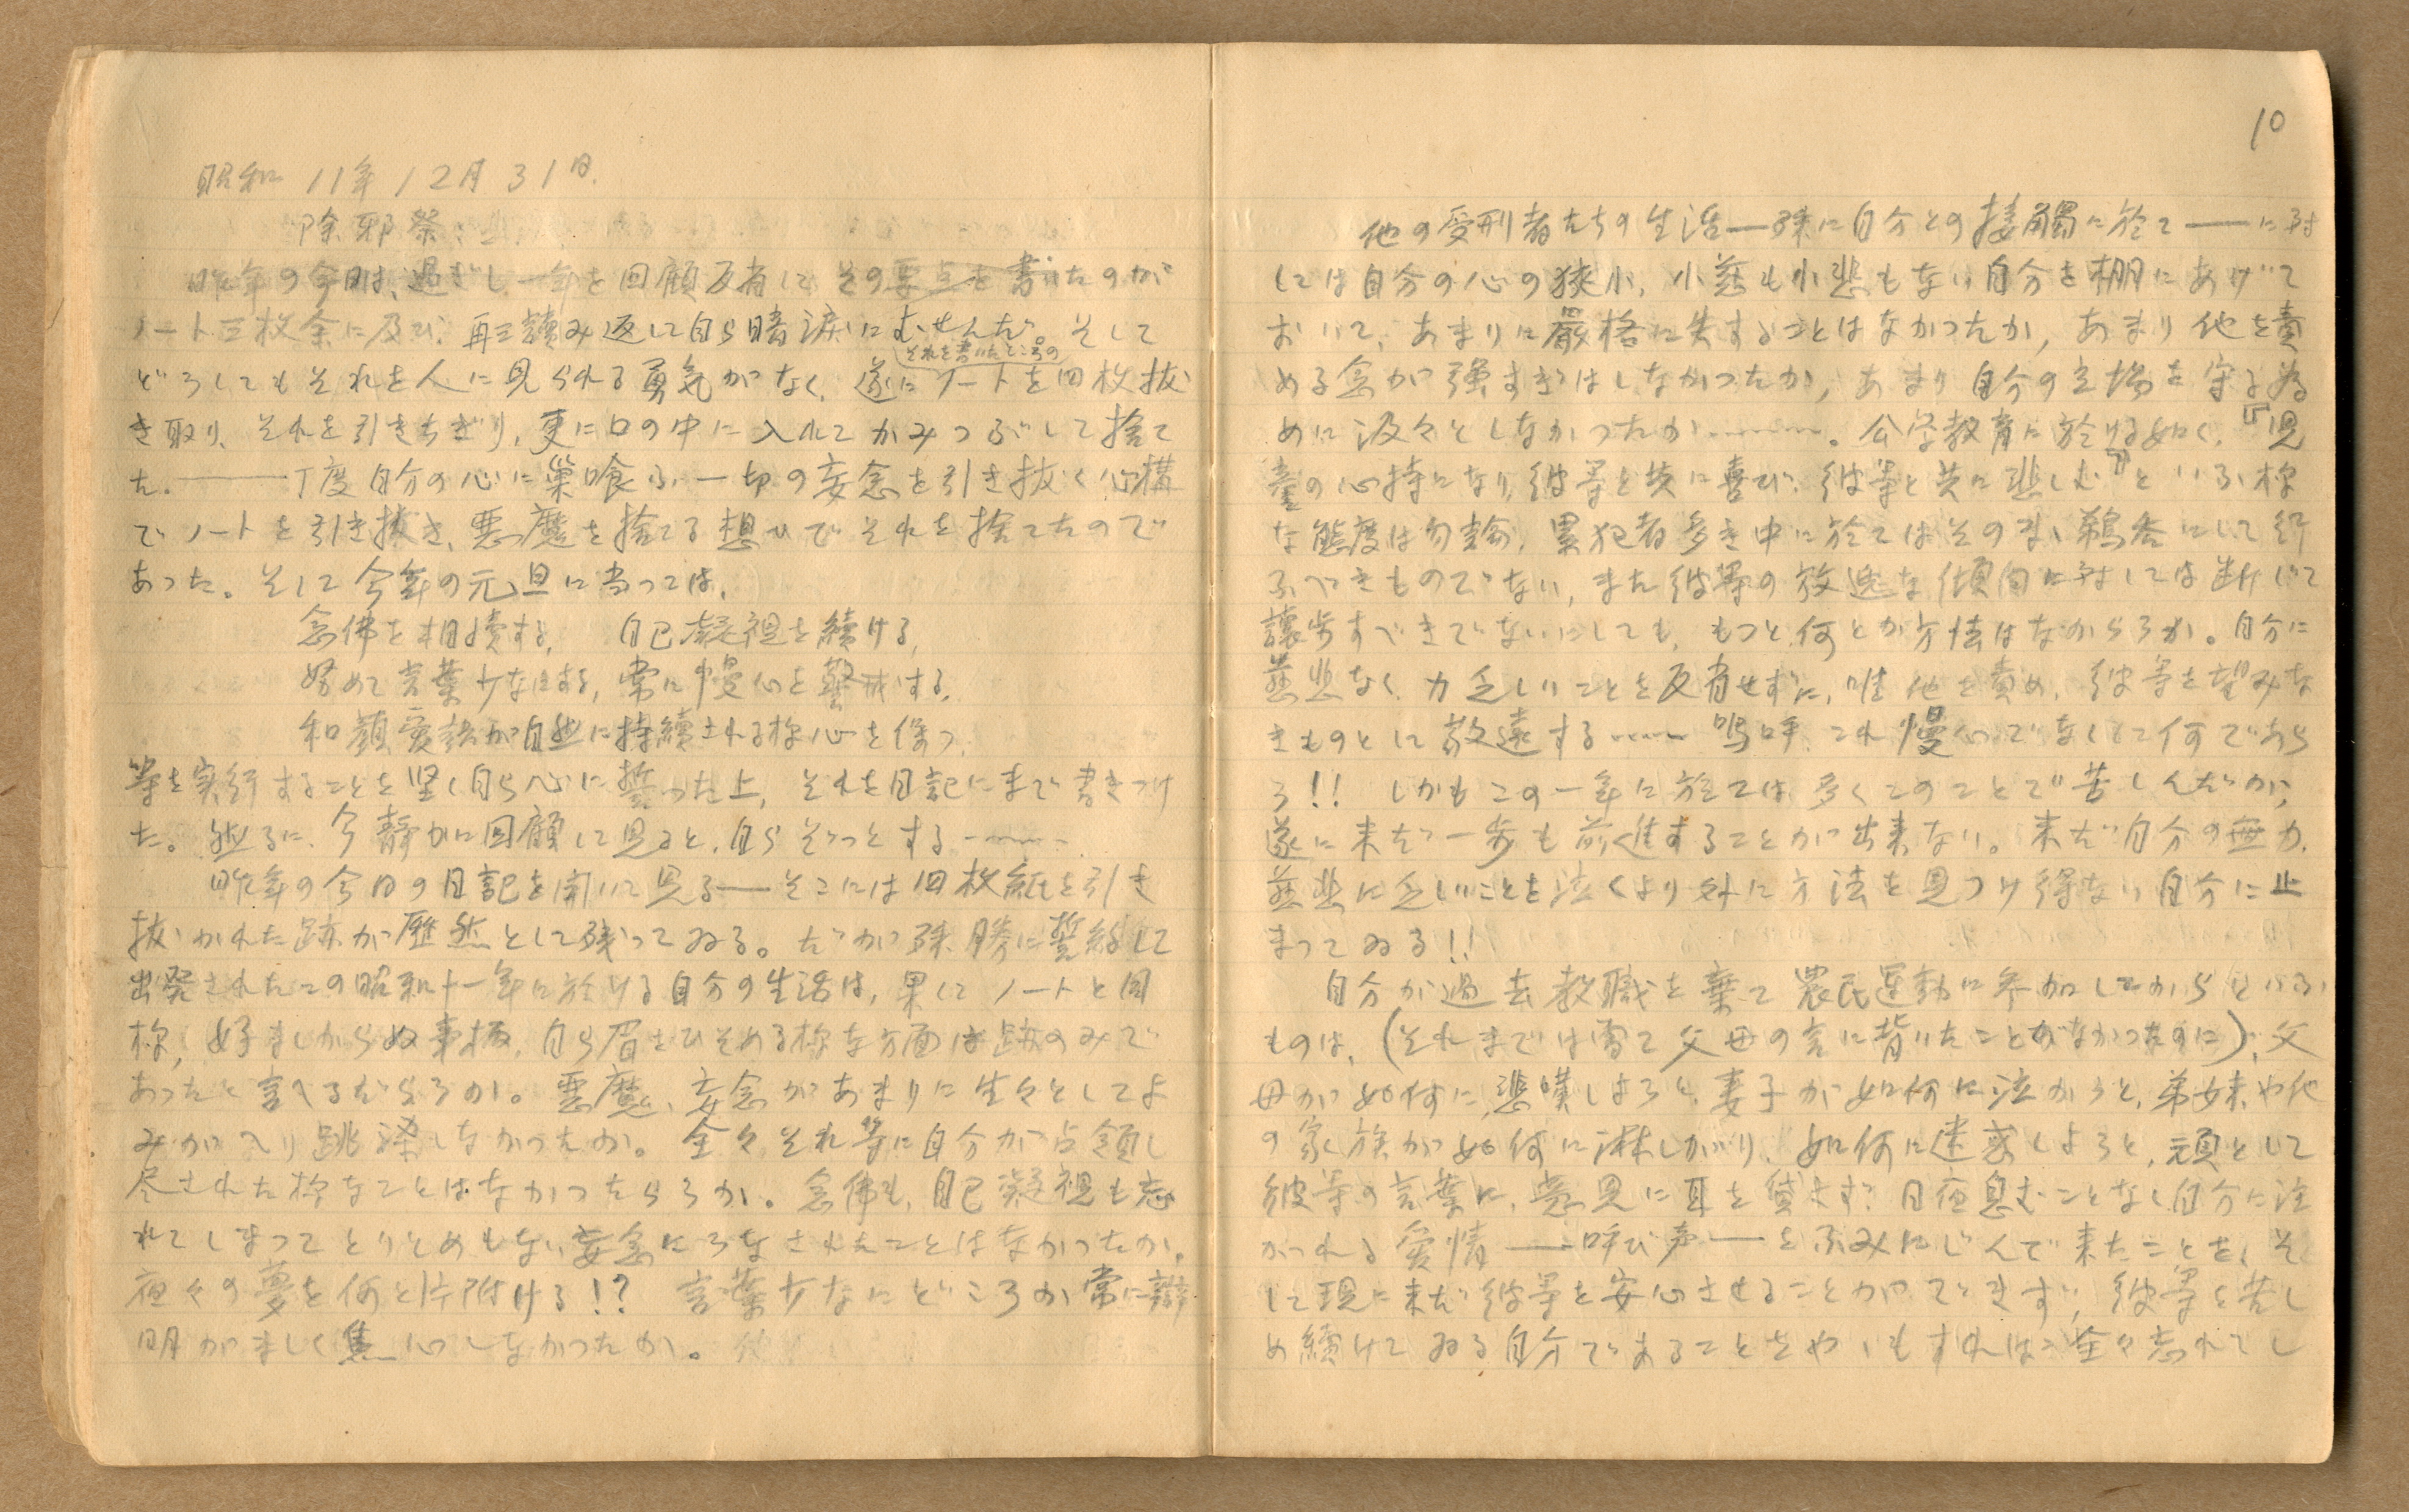 昭和 11年 12月 31日.
除邪祭
昨年の今日は、過ぎし一年を回顧反省して その要点を書いたのが
ノート三枚余に及び、再三読み返して自ら暗涙にむせんだ。そして
それを書いたところの
どうしてもそれを人に見られる勇気がなく、遂にノートを四枚抜
き取り、それを引きちぎり、更に口の中に入れてかみつぶして捨て
た。――丁度自分の心に巣喰ふ一切の妄念を引き抜く心構
でノートを引き抜き、悪魔を捨てる想ひでそれを捨てたので
あった。そして今年の元旦に当っては、
念佛を相續する, 自己凝視を續ける,
努めて言葉少なにする, 常に慢心を警戒する,
和顔愛語が自然に持續される様心を保つ,
等を実行することを堅く自ら心に誓った上, それを日記にまで書きつけ
た。然るに、今静かに回顧して見ると、自らぞっとする……
昨年の今日の日記を開いて見る――そこには四枚紙を引き
抜かれた跡が歴然として残ってゐる。だが殊勝に誓約して
出発されたこの昭和十一年に於ける自分の生活は, 果してノートと同
様, 好ましからぬ事柄, 自ら眉をひそめる様な方面は跡のみで
あったと言へるだらうか。悪魔、妄念があまりに生々としてよ
みがへり跳梁しなかったか。全々それ等に自分が占領し
尽された様なことはなかったらうか。念佛も、自己凝視も忘
れてしまってとりとめもない妄念にうなされたことはなかったか。
夜々の夢を何と片附ける!? 言葉少なにどころか常に辯
明がましく焦心しなかったか。
10
他の受刑者たちの生活――殊に自分との接觸に於て――に対
しては自分の心の狭小, 小慈も小悲もない自分を棚にあげて
おいて、あまりに嚴格に失することはなかったか, あまり他を責
める念が強すぎはしなかったか, あまり自分の立場を守る為
めに汲々としなかったか……。公学教育に於ける如く、『児
童の心持になり, 彼等と共に喜び、彼等と共に悲しむ』といふ様
な態度は勿論, 累犯者多き中に於てはそのまゝ鵜呑にして行
ふべきものでない, また彼等の放逸な傾向に対しては断じて
讓歩すべきでないにしても, もっと何とか方法はなからうか。自分に
慈悲なく、力乏しいことを反省せずに, 唯他を責め, 彼等を望みな
きものとして敬遠する…… 嗚呼、これ慢心でなくして何であら
う!! しかもこの一年に於ては多くこのことで苦しんだが,
遂に未だ一歩も前進することが出来ない。未だ自分の無力、
慈悲に乏しいことを泣くより外に方法を見つけ得ない自分に止
まってゐる!!
自分が過去教職を棄て農民運動に参加してからといふ
ものは, (それまでは嘗て父母の言に背いたことがなかったのに), 父
母が如何に悲嘆しようと、妻子が如何に泣かうと, 弟妹や他
の家族が如何に淋しがり、如何に迷惑しようと, 頑として
彼等の言葉に, 意見に耳を貸さず? 日夜息むことなく自分に注
がれる愛情――呼び声――をふみにじんで来たことを, そ
して現に未だ彼等を安心させることができず, 彼等を苦し
め續けてゐる自分であることをやゝもすれば全々忘れてし